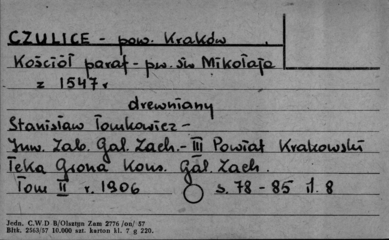 CZULICE - pow. Kraków
Kościół paraf - pw. św Mikołaja
z 1547 r
drewniany
Stanisław Tomkowicz -
Inw. Zab. Gal. Zach. - III Powiat Krakowski
Teka Grona Kons. Gal. Zach.
Tom II r. 1906 s. 78 - 85 il. 8
Jedn. C.W.D B/Olsztyn Zam 2776 /on/ 57
Bltk. 2563/57 10.000 szt. karton kl. 7 g 220.